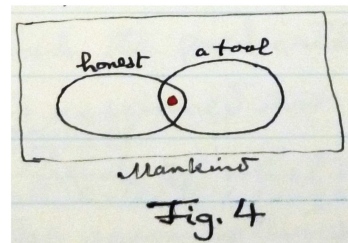 honest a tool
Mankind
Fig. 4